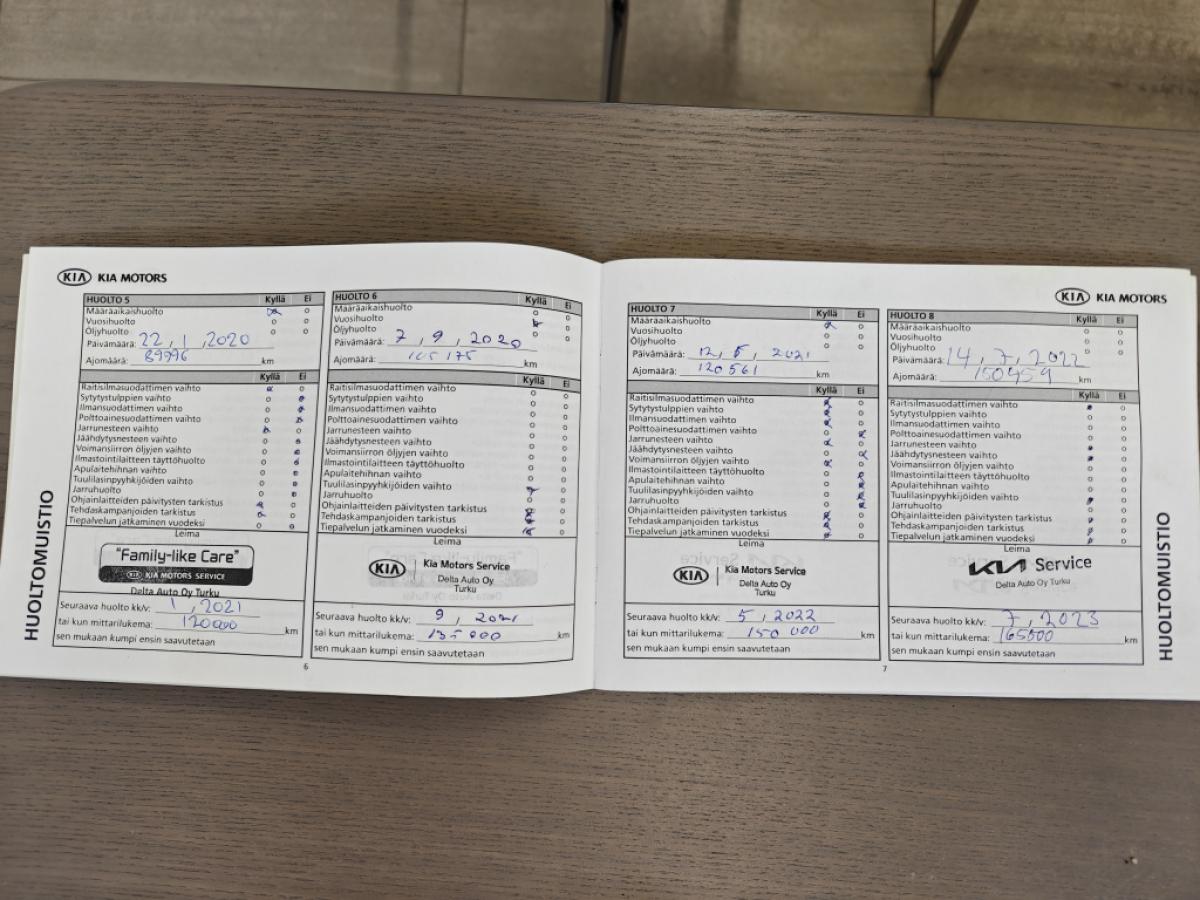 KIA KIA MOTORS
HUOLTO 5 Kyllä Ei
Määräaikaishuolto
Vuosihuolto
Öljyhuolto
Päivämäärä: 22, 1, 2020
Ajomäärä: 89996 km
Kyllä Ei
Raitisilmasuodattimen vaihto
Sytytystulppien vaihto
Ilmansuodattimen vaihto
Polttoainesuodattimen vaihto
Jarrunesteen vaihto
Jäähdytysnesteen vaihto
Voimansiirron öljyjen vaihto
Ilmastointilaitteen täyttöhuolto
Apulaitehihnan vaihto
Tuulilasinpyyhkijöiden vaihto
Jarruhuolto
Ohjainlaitteiden päivitysten tarkistus
Tehdaskampanjoiden tarkistus
Tiepalvelun jatkaminen vuodeksi
Leima
"Family-like Care"
KIA MOTORS SERVICE
Delta Auto Oy Turku
Seuraava huolto kk/v: 1, 2021
tai kun mittarilukema: 120000 km
sen mukaan kumpi ensin saavutetaan
HUOLTO 6 Kyllä Ei
Määräaikaishuolto
Vuosihuolto
Öljyhuolto
Päivämäärä: 7, 9, 2020
Ajomäärä: 105175 km
Kyllä Ei
Raitisilmasuodattimen vaihto
Sytytystulppien vaihto
Ilmansuodattimen vaihto
Polttoainesuodattimen vaihto
Jarrunesteen vaihto
Jäähdytysnesteen vaihto
Voimansiirron öljyjen vaihto
Ilmastointilaitteen täyttöhuolto
Apulaitehihnan vaihto
Tuulilasinpyyhkijöiden vaihto
Jarruhuolto
Ohjainlaitteiden päivitysten tarkistus
Tehdaskampanjoiden tarkistus
Tiepalvelun jatkaminen vuodeksi
Leima
KIA Kia Motors Service
Delta Auto Oy
Turku
Seuraava huolto kk/v: 9, 2021
tai kun mittarilukema: 135000 km
sen mukaan kumpi ensin saavutetaan
HUOLTOMUISTIO
6
KIA KIA MOTORS
HUOLTO 7 Kyllä Ei
Määräaikaishuolto
Vuosihuolto
Öljyhuolto
Päivämäärä: 12, 5, 2021
Ajomäärä: 120561 km
Kyllä Ei
Raitisilmasuodattimen vaihto
Sytytystulppien vaihto
Ilmansuodattimen vaihto
Polttoainesuodattimen vaihto
Jarrunesteen vaihto
Jäähdytysnesteen vaihto
Voimansiirron öljyjen vaihto
Ilmastointilaitteen täyttöhuolto
Apulaitehihnan vaihto
Tuulilasinpyyhkijöiden vaihto
Jarruhuolto
Ohjainlaitteiden päivitysten tarkistus
Tehdaskampanjoiden tarkistus
Tiepalvelun jatkaminen vuodeksi
Leima
KIA Kia Motors Service
Delta Auto Oy
Turku
Seuraava huolto kk/v: 5, 2022
tai kun mittarilukema: 150 000 km
sen mukaan kumpi ensin saavutetaan
HUOLTO 8 Kyllä Ei
Määräaikaishuolto
Vuosihuolto
Öljyhuolto
Päivämäärä: 14, 7, 2022
Ajomäärä: 150459 km
Kyllä Ei
Raitisilmasuodattimen vaihto
Sytytystulppien vaihto
Ilmansuodattimen vaihto
Polttoainesuodattimen vaihto
Jarrunesteen vaihto
Jäähdytysnesteen vaihto
Voimansiirron öljyjen vaihto
Ilmastointilaitteen täyttöhuolto
Apulaitehihnan vaihto
Tuulilasinpyyhkijöiden vaihto
Jarruhuolto
Ohjainlaitteiden päivitysten tarkistus
Tehdaskampanjoiden tarkistus
Tiepalvelun jatkaminen vuodeksi
Leima
KIA Service
Delta Auto Oy Turku
Seuraava huolto kk/v: 7, 2023
tai kun mittarilukema: 165000 km
sen mukaan kumpi ensin saavutetaan
HUOLTOMUISTIO
7